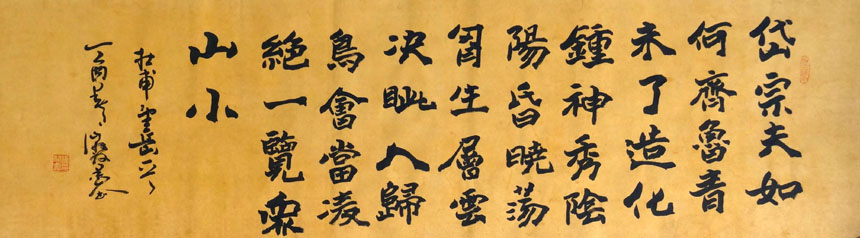 岱宗夫如
何齊魯青
未了造化
鍾神秀陰
陽昬曉蕩
胷生層雲
決眦入歸
鳥會當凌
絕一覽衆
山小
杜甫望岳
丁酉春